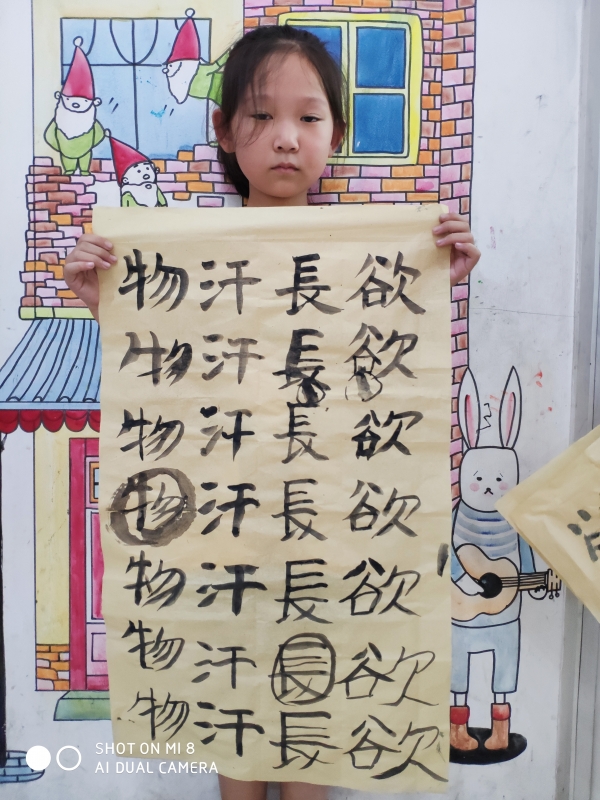 物汗長欲
物汗長欲
物汗長欲
物汗長欲
物汗長欲
物汗長欲
物汗長欲
SHOT ON MI 8
AI DUAL CAMERA